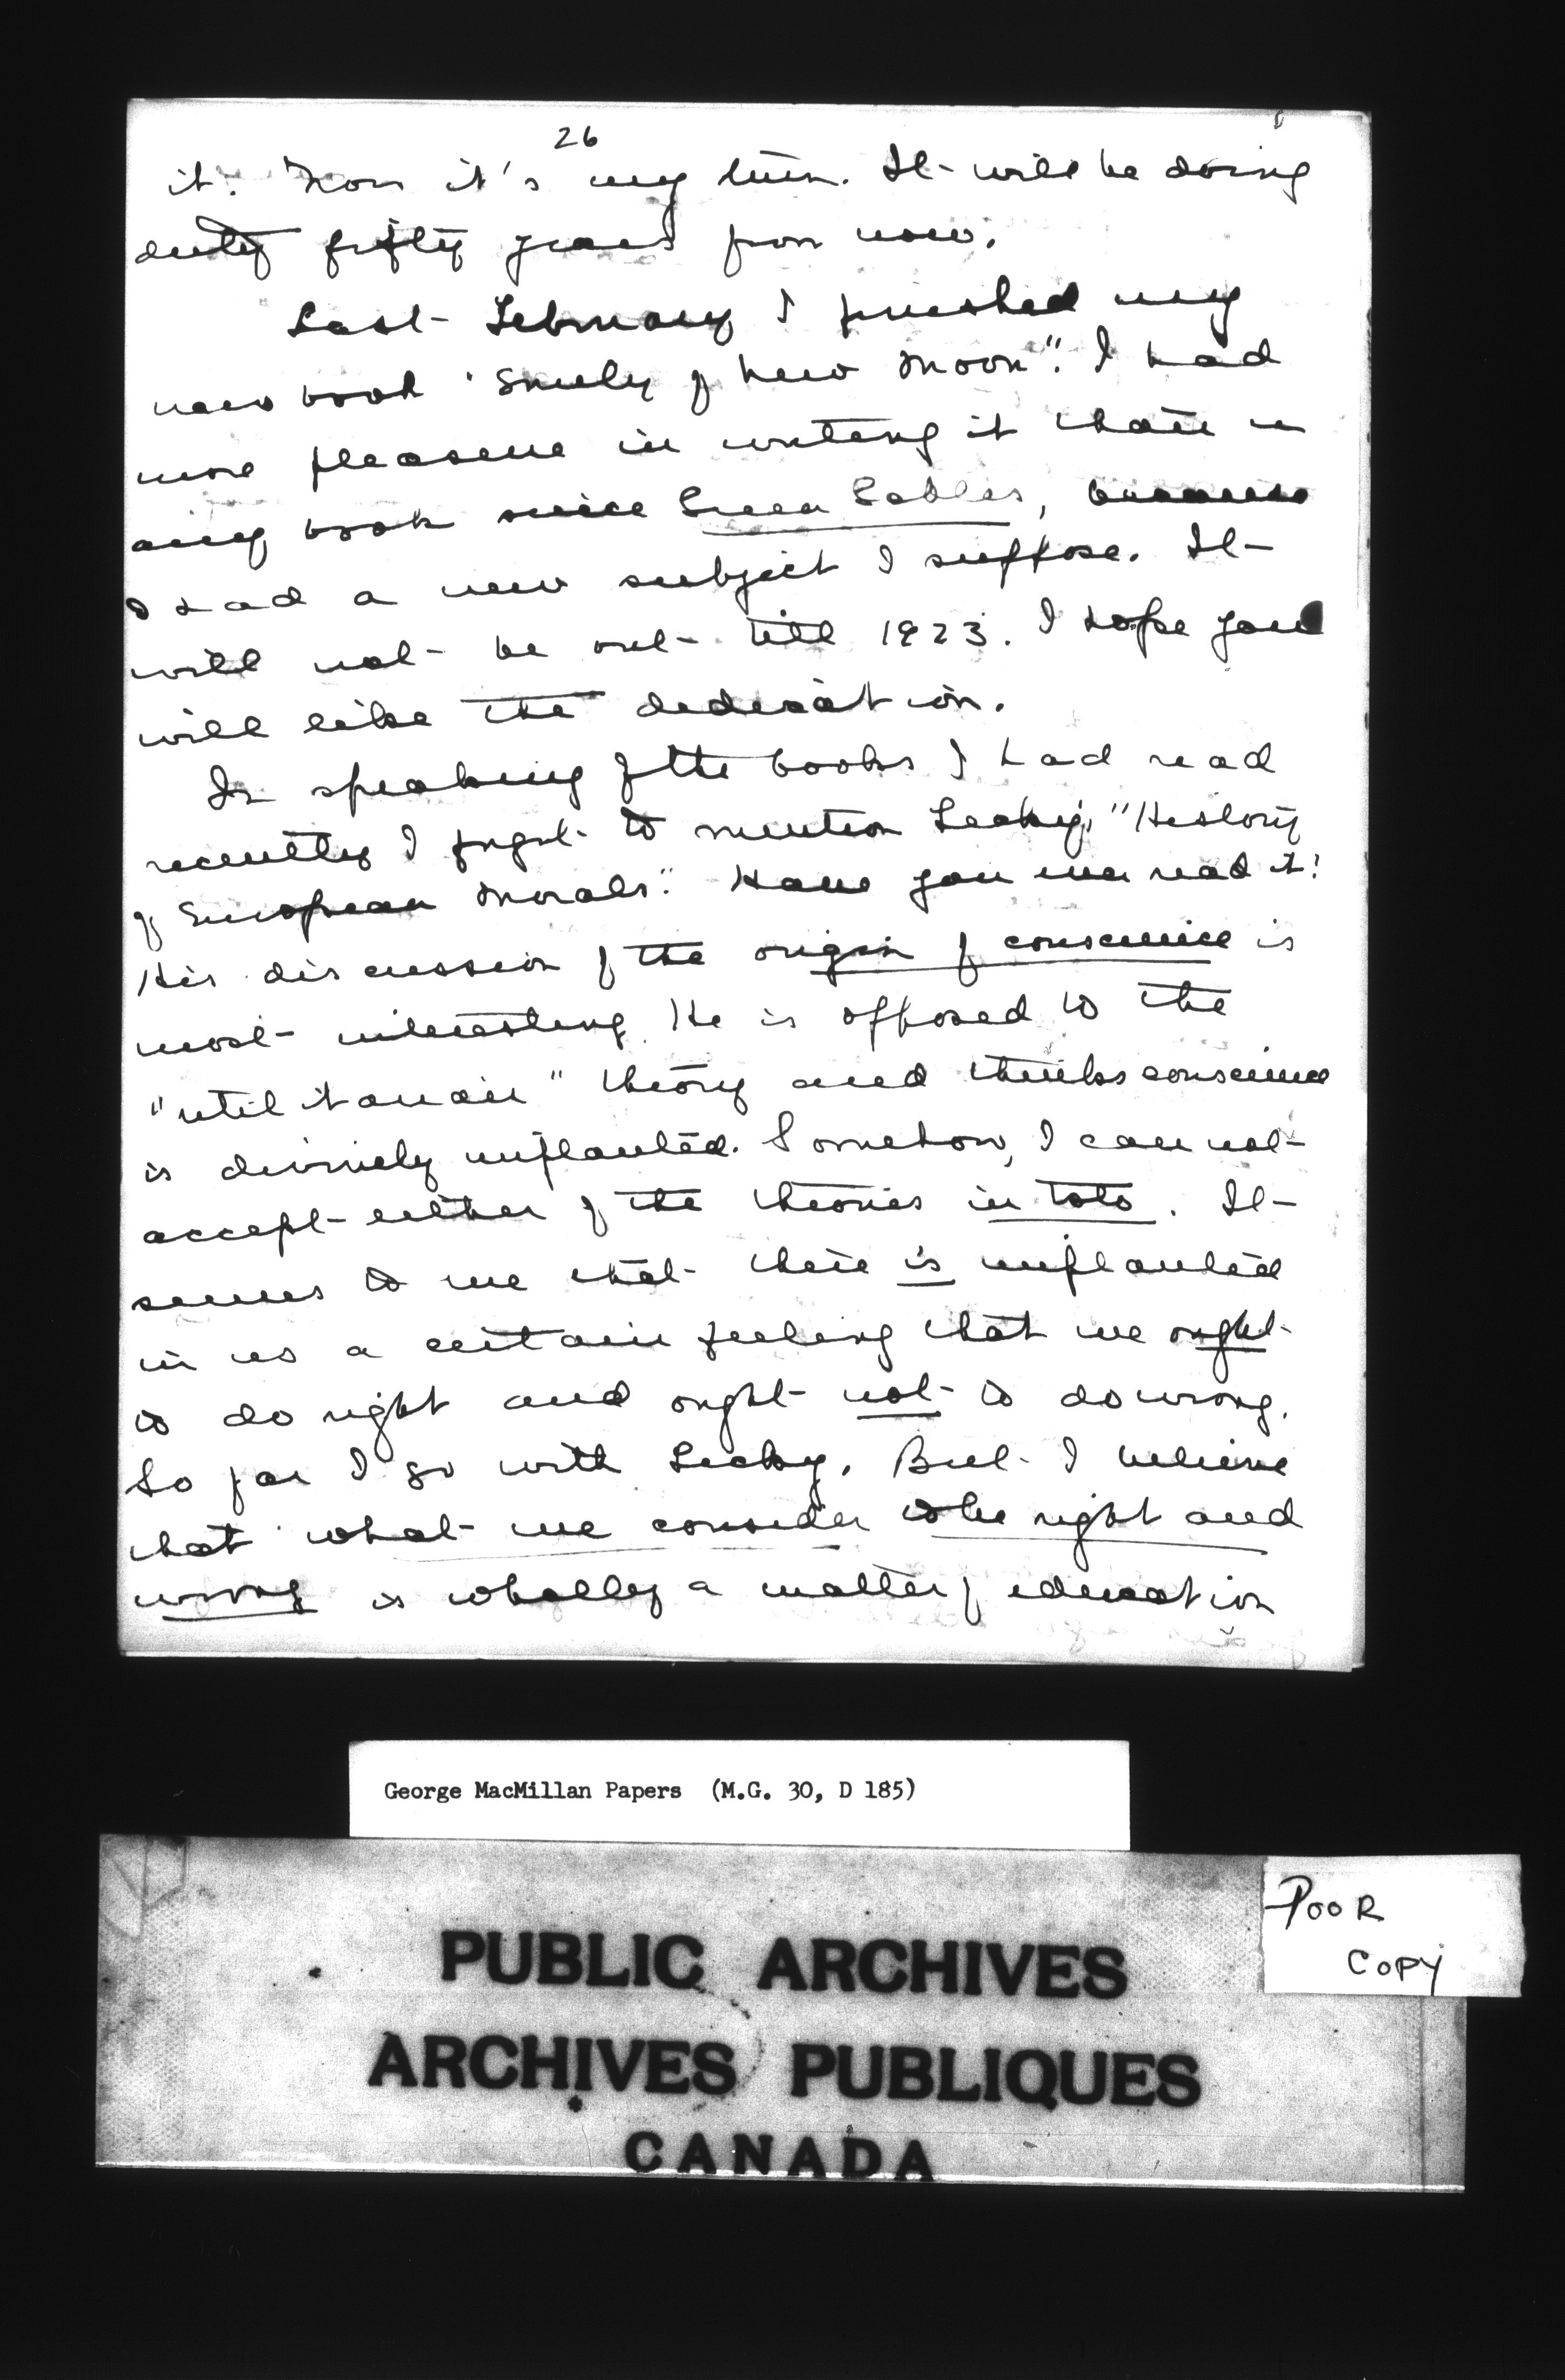 26
it. Now it's my turn. It will be doing
duty fifty years from now.
Last February I finished my
new book "Emily of New Moon". I had
more pleasure in writing it than in
any book since Green Gables, because
I had a new subject I suppose. It
will not be out till 1923. I hope you
will like the dedication.
In speaking of the books I had read
recently I forgot to mention Lecky's "History
of European Morals". Have you ever read it?
His discussion of the origin of conscience is
most interesting. He is opposed to the
"utilitarian" theory and thinks conscience
is divinely implanted. Somehow, I cannot
accept either of the theories in toto. It
seems to me that there is implanted
in us a certain feeling that we ought
to do right and ought not to do wrong.
So far I go with Lecky. But I believe
that what we consider to be right and
wrong is wholly a matter of education
George MacMillan Papers (M.G. 30, D 185)
POOR
COPY
PUBLIC ARCHIVES
ARCHIVES PUBLIQUES
CANADA